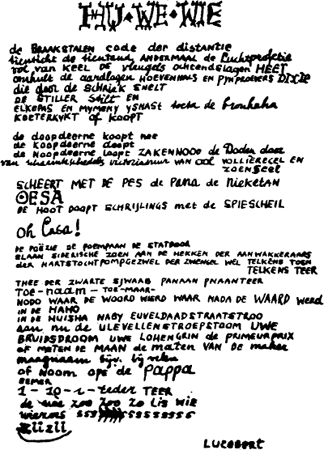 HU·WE·WIE
de BRAAKSTALEN code der distantie
tientiche de tientand, ANDERMAAL de Luchtprofetie
rol van KEEL DE vleugels ochtendslagen HEET
omhult de aardlagen HOEVENHALS en PYNPROEVERS DIXIE
die door de SCHRIK SNELT
DE STILLER Stilt en
ELKEPAS en MYMENY YSNAST
KOETERKYKT of KOOPT
de doopdoorne koopt nee
de koopdoorne doopt
de Noopdoorne loopt ZAKENNOOD de Doden door
van OOL VOLLIERECEL EN
ZOENSEEL
SCHEERT MET DE PES de Pana de Nieketan
OESA
DE HOOT DOOPT SCHRIJLINGS met de SPIESCHEIL
Oh Casa!
DE POËZIE DE POEMPAAN DE STATDOOR
SLAAN SIBERISCHE ZOEN AAN DE HEKKEN DER AANWAKKERAARS
DER HARTSTOCHTPOMPGEZWEL DER ZWENGEL WEL TELKENS TOEN
TELKENS TEER
THEE DER ZWARTE SJWAAB PANAAN PNAANTEER
TOE-NAAM-TOE-MAAR-
NODO WAAR DE WOORD WIERD WAAR NADA DE WAARD werd
IN DE MAHO
IN DE HUISHA NABY EUVELDAADSTRAATSTROO
aan nu de ULEVELLENSTROEPSTOOM UWE
BRUIDSDROOM UWE LOHENGRIN de PRIMEURPRIX
of METEN DE MAAN de maten VAN DE maker
maagnaam bijv. bij
of NOOM ope de PAPPA
REMER
1-10-1-teder TEER
de zoo zoo zo LIS WIE
wierons
ziizii
LUCEBERT